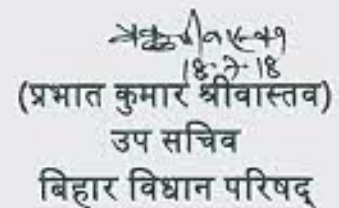 18-7-18
(प्रभात कुमार श्रीवास्तव)
उप सचिव
बिहार विधान परिषद्